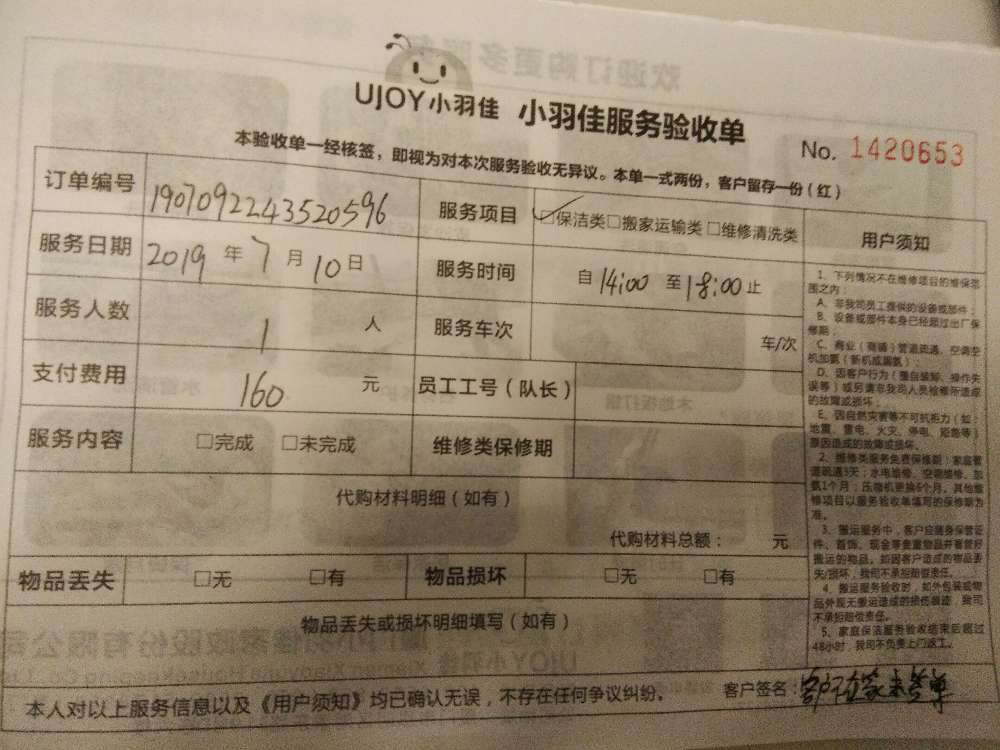 UJOY小羽佳 小羽佳服务验收单
No. 1420653
本验收单一经核签，即视为对本次服务验收无异议。本单一式两份，客户留存一份（红）
订单编号 1907092243520596 服务项目 ☑保洁类□搬家运输类□维修清洗类
服务日期 2019年7月10日 服务时间 自14:00至18:00止
服务人数 1 人 服务车次 车/次
支付费用 160 元 员工工号（队长）
服务内容 □完成 □未完成 维修类保修期
代购材料明细（如有）
代购材料总额： 元
物品丢失 □无 □有 物品损坏 □无 □有
物品丢失或损坏明细填写（如有）
本人对以上服务信息以及《用户须知》均已确认无误，不存在任何争议纠纷。 客户签名：客户不在家未签单
用户须知
1、下列情况不在维修项目的维保范
围之内：
A、非我司员工提供的设备或部件；
B、设备或部件本身已经超过出厂保
修期；
C、商业（商铺）管道疏通、空调空
机加氨（新机或漏氨）
D、因客户行为（擅自装卸、操作失
误等）或另请非我司人员检修所造成
的故障或损坏；
E、因自然灾害等不可抗拒力（如：
地震、雷电、火灾、停电、短路等）
原因造成的故障或损坏。
2、维修类服务免费保修期：家庭管
道疏通3天；水电维修、空调维修、加
氨1个月；压缩机更换6个月。其他维
修项目以服务验收单填写的保修期为
准。
3、搬运服务中，客户应随身保管证
件、首饰、现金等贵重物品并看管好
搬运的物品。如因客户造成的物品丢
失/损坏，我司不承担赔偿责任。
4、搬运服务验收时，如外包装或物
品外观无搬运造成的损伤痕迹，我司
不承担赔偿责任。
5、家庭保洁服务验收结束后超过
48小时，我司不负责上门返工。